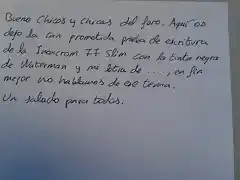 Bueno chicos y chicas del foro. Aquí os
dejo la tan prometida prueba de escritura
de la Inoxcrom 77 Slim con la tinta negra
de Waterman y mi letra de ...., en fin
mejor no hablamos de ese tema.
Un saludo para todos.